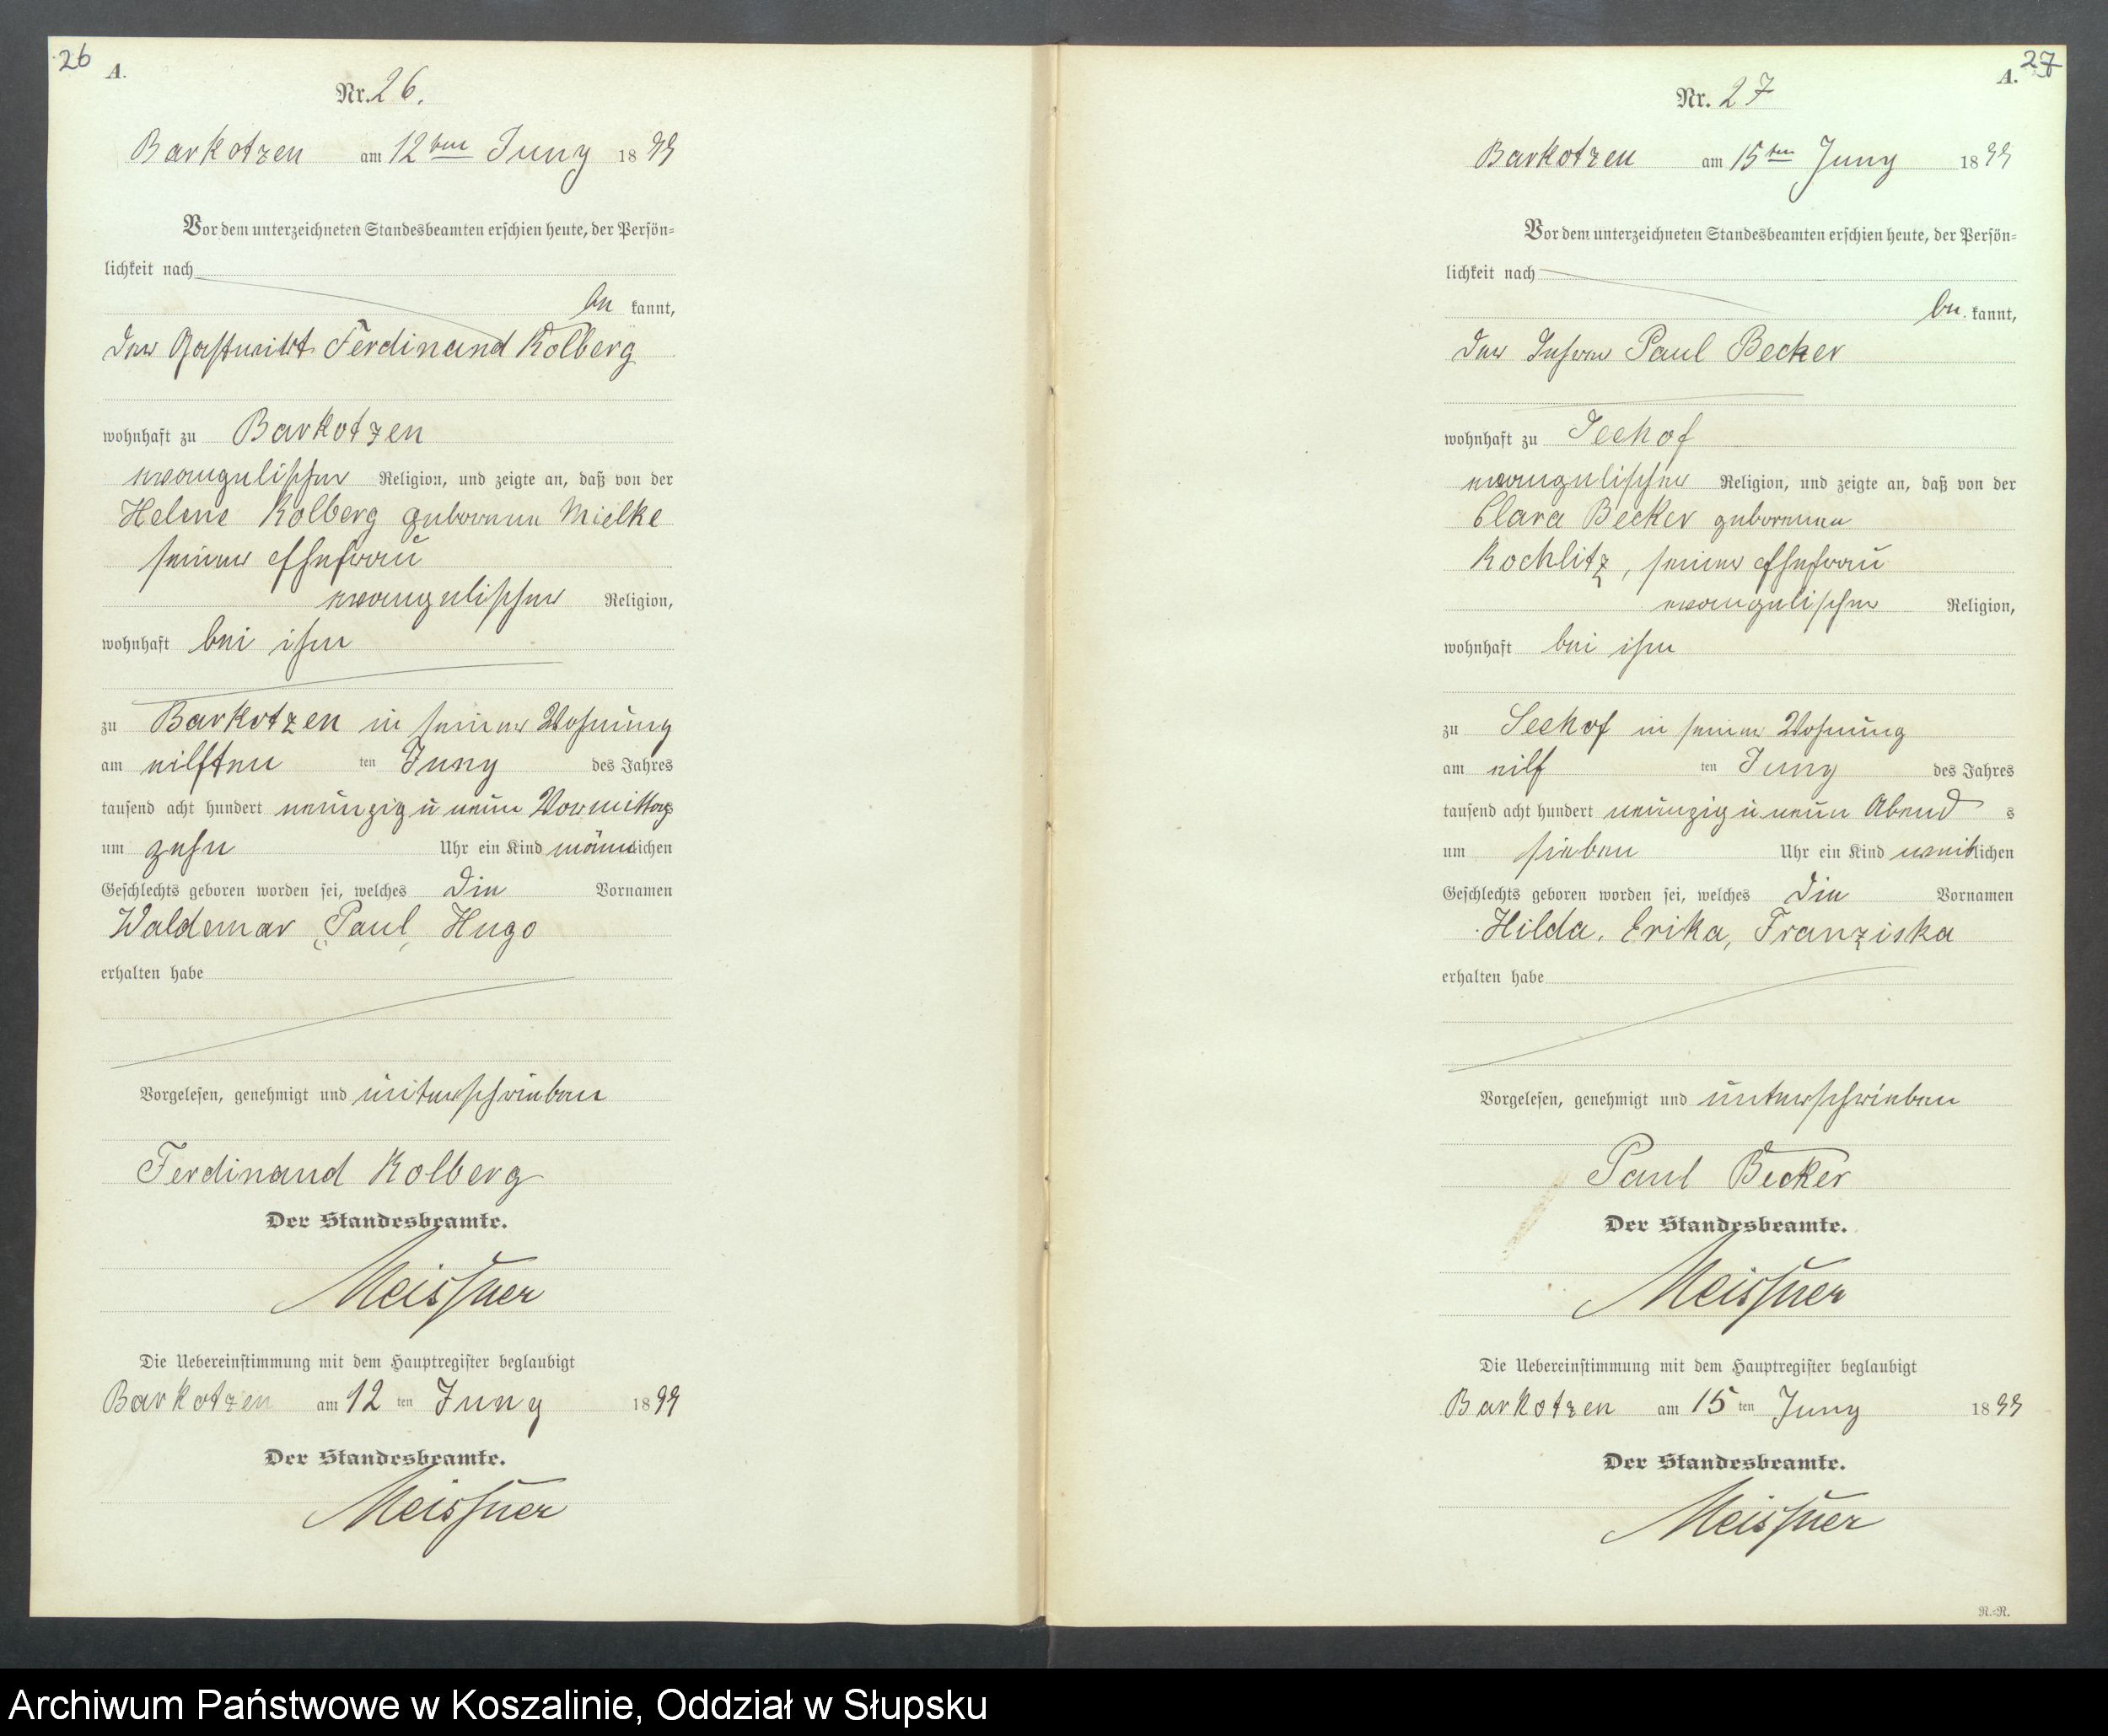 26
A.
Nr. 26.
Barkotzen am 12ten Juny 1899
Vor dem unterzeichneten Standesbeamten erschien heute, der Persön=
lichkeit nach
be kannt,
der Gastwirt Ferdinand Kolberg
wohnhaft zu Barkotzen
evangelischer Religion, und zeigte an, daß von der
Helene Kolberg geborenen Mielke
seiner Ehefrau
evangelischer Religion,
wohnhaft bei ihm
zu Barkotzen in seiner Wohnung
am eilften ten Juny des Jahres
tausend acht hundert neunzig u neun Vormittags
um zehn Uhr ein Kind männlichen
Geschlechts geboren worden sei, welches die Vornamen
Waldemar, Paul, Hugo
erhalten habe
Vorgelesen, genehmigt und unterschrieben
Ferdinand Kolberg
Der Standesbeamte.
Meissner
Die Uebereinstimmung mit dem Hauptregister beglaubigt
Barkotzen am 12 ten Juny 1899
Der Standesbeamte.
Meissner
27
A.
Nr. 27
Barkotzen am 15ten Juny 1899
Vor dem unterzeichneten Standesbeamten erschien heute, der Persön=
lichkeit nach
be kannt,
der Paul Becker
wohnhaft zu Seehof
evangelischer Religion, und zeigte an, daß von der
Clara Becker geborenen
Kochlitz, seiner Ehefrau
evangelischer Religion,
wohnhaft bei ihm
zu Seehof in seiner Wohnung
am eilf ten Juny des Jahres
tausend acht hundert neunzig u neun Abend s
um sieben Uhr ein Kind weiblichen
Geschlechts geboren worden sei, welches die Vornamen
Hilda, Erika, Franziska
erhalten habe
Vorgelesen, genehmigt und unterschrieben
Paul Becker
Der Standesbeamte.
Meissner
Die Uebereinstimmung mit dem Hauptregister beglaubigt
Barkotzen am 15 ten Juny 1899
Der Standesbeamte.
Meissner
R.=R.
Archiwum Państwowe w Koszalinie, Oddział w Słupsku